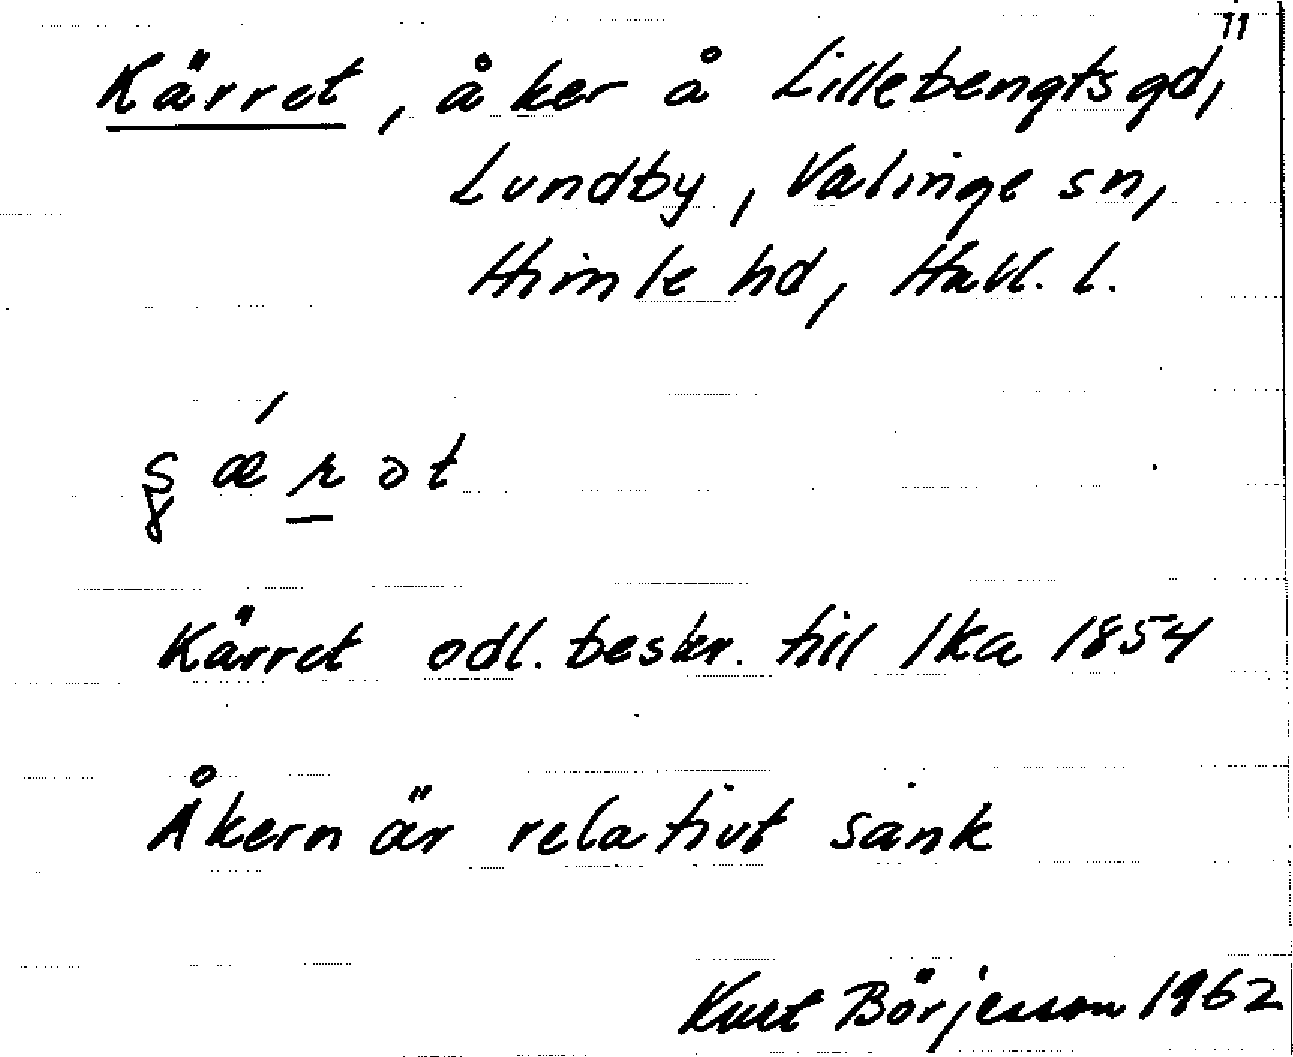 11
Kärret, åker å Lillebengtsgd,
Lundby, Valinge sn,
Himle hd, Hall. l.
kärret odl. beskr. till lka 1854
Åkern är relativt sank
Kurt Börjesson 1962